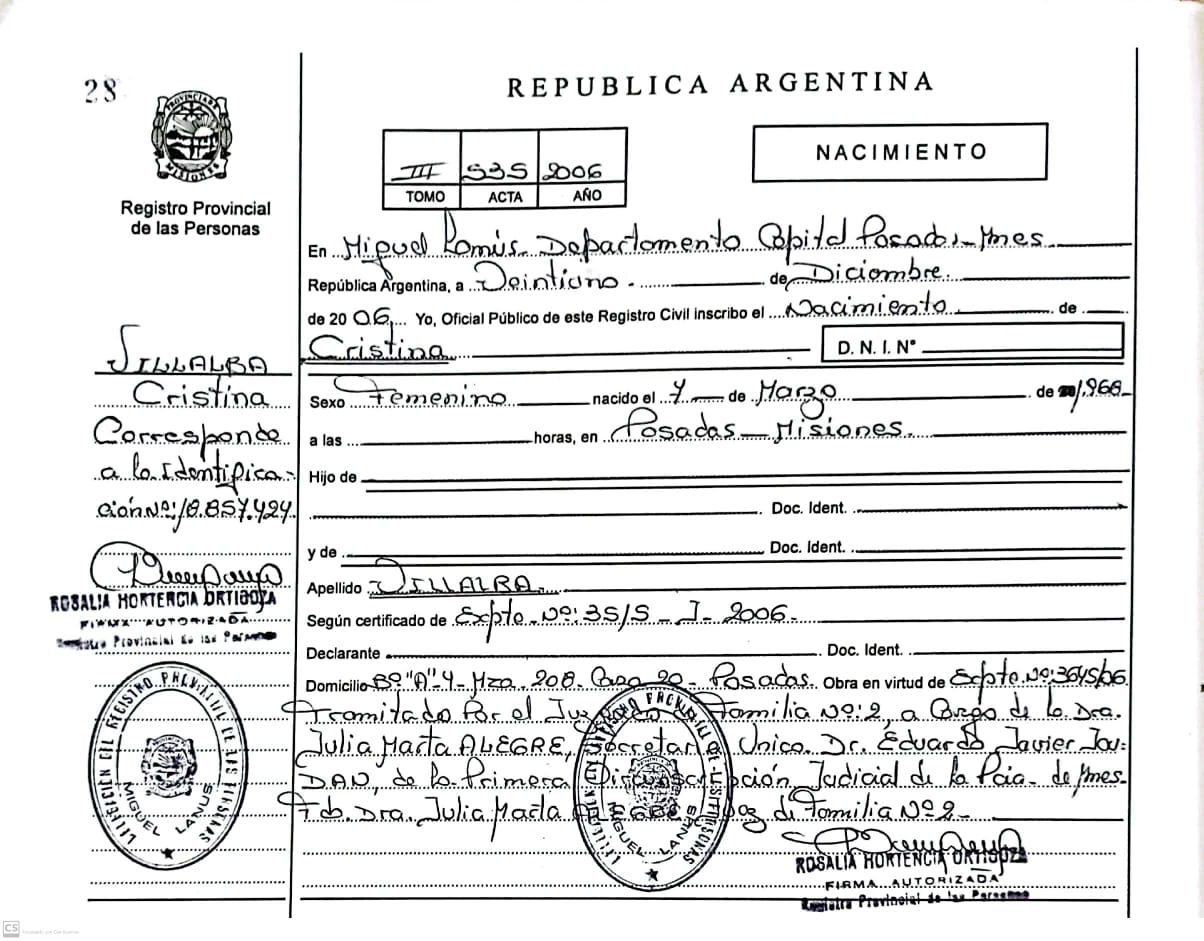 28
PROVINCIA DE MISIONES
Registro Provincial
de las Personas
REPUBLICA ARGENTINA
III 535 2006
TOMO ACTA AÑO
NACIMIENTO
En Miguel Lanús. Departamento Capital Posadas-Mnes
República Argentina, a Veintiuno. de Diciembre.
de 2006. Yo, Oficial Público de este Registro Civil inscribo el Nacimiento de
Cristina D. N. I. N°
Sexo Femenino nacido el 7 de Marzo de 1.968
a las horas, en Posadas - Misiones.
Hijo de
Doc. Ident.
y de Doc. Ident.
Apellido VILLALBA.
Según certificado de Expto. Nº: 35/S - J - 2006.
Declarante Doc. Ident.
Domicilio Bº "A"-4-Mza 208. Casa 20- Posadas. Obra en virtud de Expto. Nº:
Tramitado Por el Familia Nº: 2, a Cargo de la Dra.
Julia Marta ALEGRE, Secretar Unico. Dr. Eduardo Javier Jou-
DAN, de la Primera Circunscripción Judicial de la Pcia- de Mnes-
Fdo. Dra. Julia Marta de Familia Nº 2-
VILLALBA
Cristina
Corresponde
a la Identifica-
ción Nº: 18.857.424.
ROSALIA HORTENCIA ORTIGOZA
FIRMA AUTORIZADA
Registro Provincial de las Personas
MIGUEL LANUS
MIGUEL LANUS
ROSALIA HORTENCIA ORTIGOZA
FIRMA AUTORIZADA
Registro Provincial de las Personas
CS